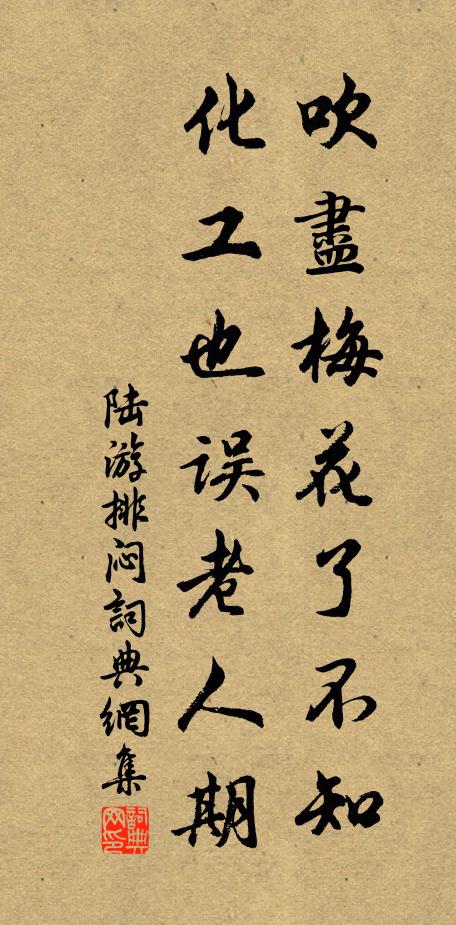 吹盡梅花了不知
化工也误老人期
陆游排闷詞典網集
詞典网印